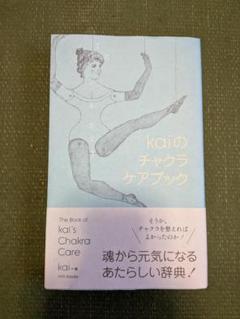 kaiの
チャクラ
ケアブック
The Book of
kai's
Chakra
Care
kai=著
そうか、
チャクラを整えれば
よかったのか!
魂から元気になる
あたらしい辞典!